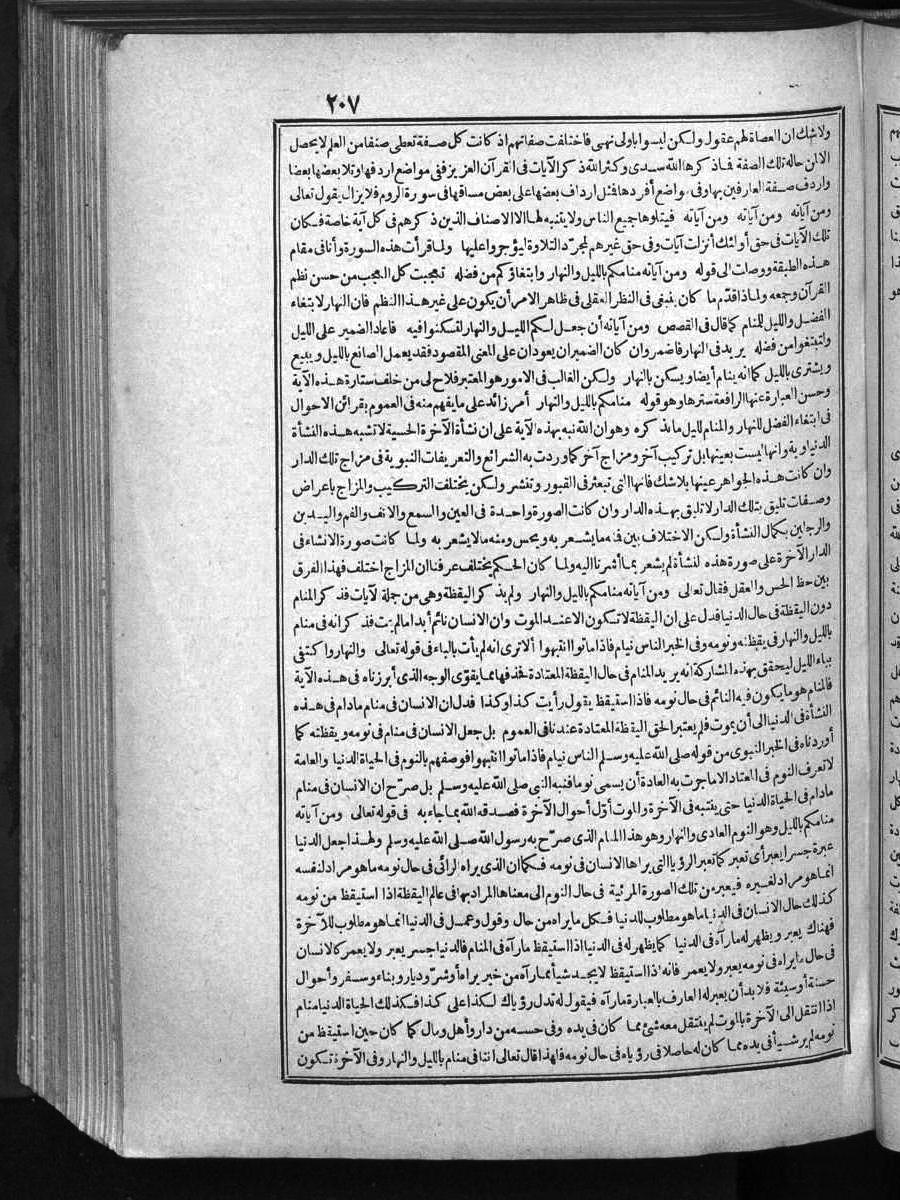 ٢٠٧
ولا شك ان العصاة لهم عقول ولكن ليسوا باولى نهى فاختلفت صفاتهم اذ كانت كل صفة تعطى صنفا من العلم لا يحصل
الا لمن حاله تلك الصفة فما ذكرها الله سدى وكثر الله ذكر الآيات فى القرآن العزيز ففى مواضع اردفها وتلا بعضها بعضا
واردف صفة العارفين بها وفى مواضع أفردها فمثل ارداف بعضها على بعض مساقها فى سورة الروم فلا يزال يقول تعالى
ومن آياته ومن آياته ومن آياته فيتلوها جميع الناس ولا يتنبه لها الا الاصناف الذين ذكرهم فى كل آية خاصة فكان
تلك الآيات فى حق أولئك أنزلت آيات وفى حق غيرهم لمجرّد التلاوة ليؤجروا عليها ولما قرأت هذه السورة وأنا فى مقام
هذه الطبقة ووصلت الى قوله ومن آياته منامكم بالليل والنهار وابتغاؤكم من فضله تعجبت كل العجب من حسن نظم
القرآن وجمعه ولماذا قدّم ما كان ينبغى فى النظر العقلى فى ظاهر الامر أن يكون على غير هذا النظم فان النهار لابتغاء
الفضل والليل للمنام كما قال فى القصص ومن آياته أن جعل لكم الليل والنهار لتسكنوا فيه فاعاد الضمير على الليل
ولتبتغوا من فضله يريد فى النهار فاضمر وان كان الضميران يعودان على المعنى المقصود فقد يعمل الصانع بالليل ويبيع
ويشترى بالليل كما انه ينام أيضا ويسكن بالنهار ولكن الغالب فى الامور هو المعتبر فلاح لى من خلف ستارة هذه الآية
وحسن العبارة عنها الرافعة سترها وهو قوله منامكم بالليل والنهار أمر زائد على ما يفهم منه فى العموم بقرائن الاحوال
فى ابتغاء الفضل للنهار والمنام لليل ما نذكره وهو ان الله نبه بهذه الآية على ان نشأة الآخرة الحسية لا تشبه هذه النشأة
الدنياوية وانها ليست بعينها بل تركيب آخر ومزاج آخر كما وردت به الشرائع والتعريفات النبوية فى مزاج تلك الدار
وان كانت هذه الجواهر عينها بلا شك فانها التى تبعثر فى القبور وتنشر ولكن يختلف التركيب والمزاج باعراض
وصفات تليق بتلك الدار لا تليق بهذه الدار وان كانت الصورة واحدة فى العين والسمع والانف والفم واليدين
والرجلين بكمال النشأة ولكن الاختلاف بين فمنه ما يشعر به ويحس ومنه ما لا يشعر به ولما كانت صورة الانشاء فى
الدار الآخرة على صورة هذه النشأة لم يشعر بما أشرنا اليه ولما كان الحكم يختلف عرفنا ان المزاج اختلف فهذا الفرق
بين حظ الحس والعقل فقال تعالى ومن آياته منامكم بالليل والنهار ولم يذكر اليقظة وهى من جملة الآيات فذكر المنام
دون اليقظة فى حال الدنيا فدل على ان اليقظة لا تكون الا عند الموت وان الانسان نائم أبدا ما لم يمت فذكر انه فى منام
بالليل والنهار فى يقظته ونومه وفى الخبر الناس نيام فاذا ماتوا انتبهوا ألا ترى انه لم يأت بالباء فى قوله تعالى والنهار واكتفى
بباء الليل ليحقق بهذه المشاركة انه يريد المنام فى حال اليقظة المعتادة فحذفها مما يقوّى الوجه الذى أبرزناه فى هذه الآية
فالمنام هو ما يكون فيه النائم فى حال نومه فاذا استيقظ يقول رأيت كذا وكذا فدل ان الانسان فى منام مادام فى هذه
النشأة فى الدنيا الى أن يموت فلم يعتبر الحق اليقظة المعتادة عندنا فى العموم بل جعل الانسان فى منام فى نومه ويقظته كما
أوردناه فى الخبر النبوى من قوله صلى الله عليه وسلم الناس نيام فاذا ماتوا انتبهوا فوصفهم بالنوم فى الحياة الدنيا والعامة
لا تعرف النوم فى المعتاد الا ما جرت به العادة أن يسمى نوما فنبه النبى صلى الله عليه وسلم بل صرّح ان الانسان فى منام
مادام فى الحياة الدنيا حتى ينتبه فى الآخرة والموت أوّل أحوال الآخرة فصدقه الله بما جاء به فى قوله تعالى ومن آياته
منامكم بالليل وهو النوم العادى والنهار وهو هذا المنام الذى صرّح به رسول الله صلى الله عليه وسلم ولهذا جعل الدنيا
عبرة جسرا يعبر أى تعبر كما تعبر الرؤيا التى يراها الانسان فى نومه فكما ان الذى يراه الرائى فى حال نومه ما هو مراد لنفسه
انما هو مراد لغيره فيعبر من تلك الصورة المرئية فى حال النوم الى معناها المراد بها فى عالم اليقظة اذا استيقظ من نومه
كذلك حال الانسان فى الدنيا ما هو مطلوب للدنيا فكل ما يراه من حال وقول وعمل فى الدنيا انما هو مطلوب للآخرة
فهناك يعبر ويظهر له ما رآه فى الدنيا كما يظهر له فى الدنيا اذا استيقظ ما رآه فى المنام فالدنيا جسر يعبر ولا يعمر كالانسان
فى حال ما يراه فى نومه يعبر ولا يعمر فانه اذا استيقظ لا يجد شيأ مما رآه من خير يراه أو شرّ وديار وبناء وسفر وأحوال
حسنة أو سيئة فلا بد أن يعبر له العارف بالعبارة ما رآه فيقول له تدل رؤياك لكذا على كذا فكذلك الحياة الدنيا منام
اذا انتقل الى الآخرة بالموت لم ينتقل معه شئ مما كان فى يده وفى حسه من دار وأهل ومال كما كان حين استيقظ من
نومه لم ير شيأ فى يده مما كان له حاصلا فى رؤياه فى حال نومه فلهذا قال تعالى اننا فى منام بالليل والنهار وفى الآخرة تكون